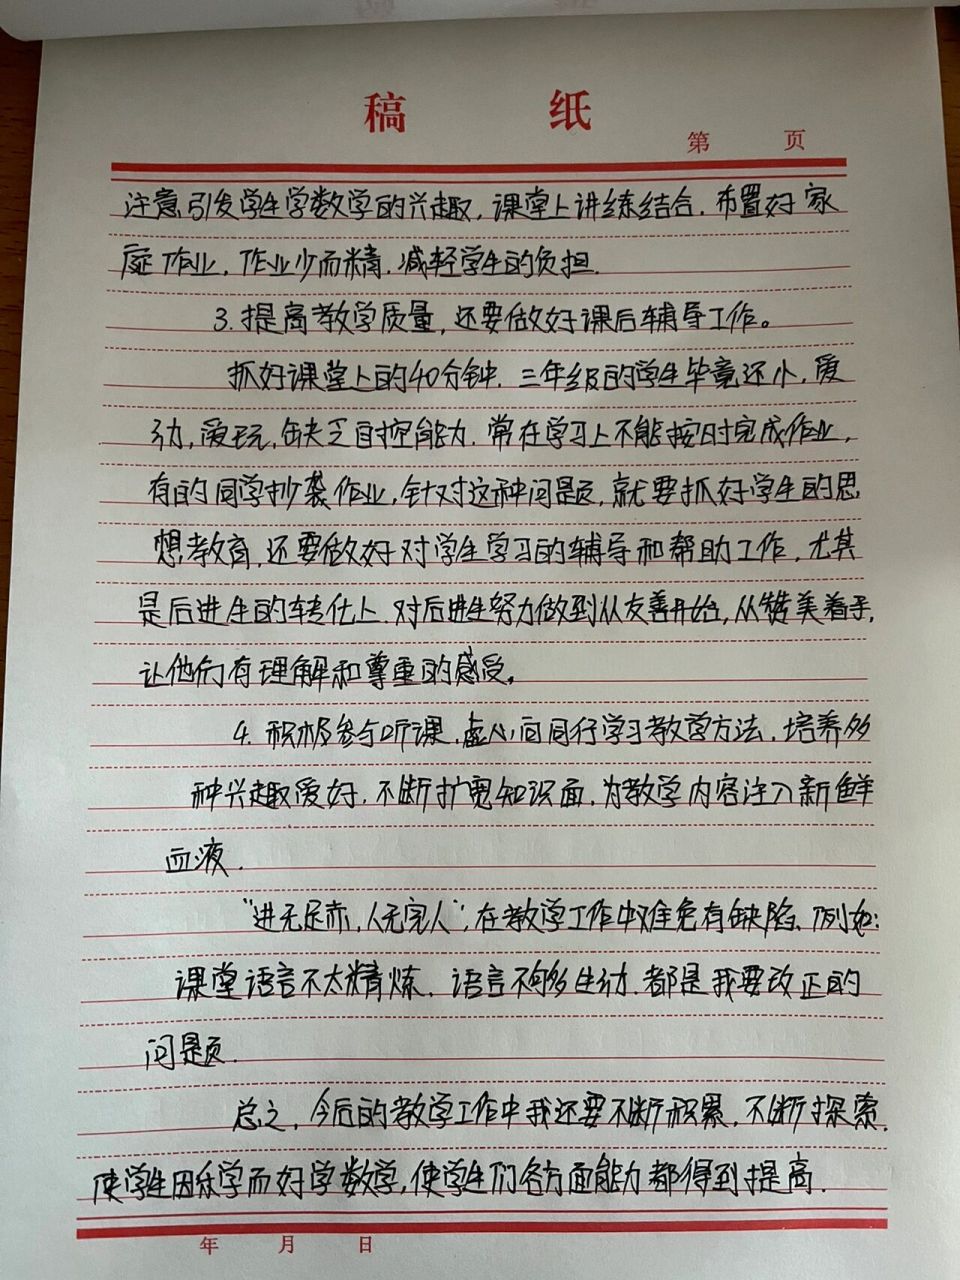 稿 纸
第 页
注意引发学生学数学的兴趣，课堂上讲练结合，布置好家
庭作业，作业少而精，减轻学生的负担.
3.提高教学质量，还要做好课后辅导工作。
抓好课堂上的40分钟，三年级的学生毕竟还小，爱
动，爱玩，缺乏自控能力，常在学习上不能按时完成作业，
有的同学抄袭作业，针对这种问题，就要抓好学生的思
想教育，还要做好对学生学习的辅导和帮助工作，尤其
是后进生的转化上，对后进生努力做到从友善开始，从赞美着手，
让他们有理解和尊重的感受。
4.积极参与听课，虚心向同行学习教学方法，培养多
种兴趣爱好，不断扩宽知识面，为教学内容注入新鲜
血液.
“进无足赤，人无完人”，在教学工作中难免有缺陷，例如：
课堂语言不太精炼，语言不够生动，都是我要改正的
问题.
总之，今后的教学工作中我还要不断积累，不断探索，
使学生因乐学而好学数学，使学生们各方面能力都得到提高.
年 月 日